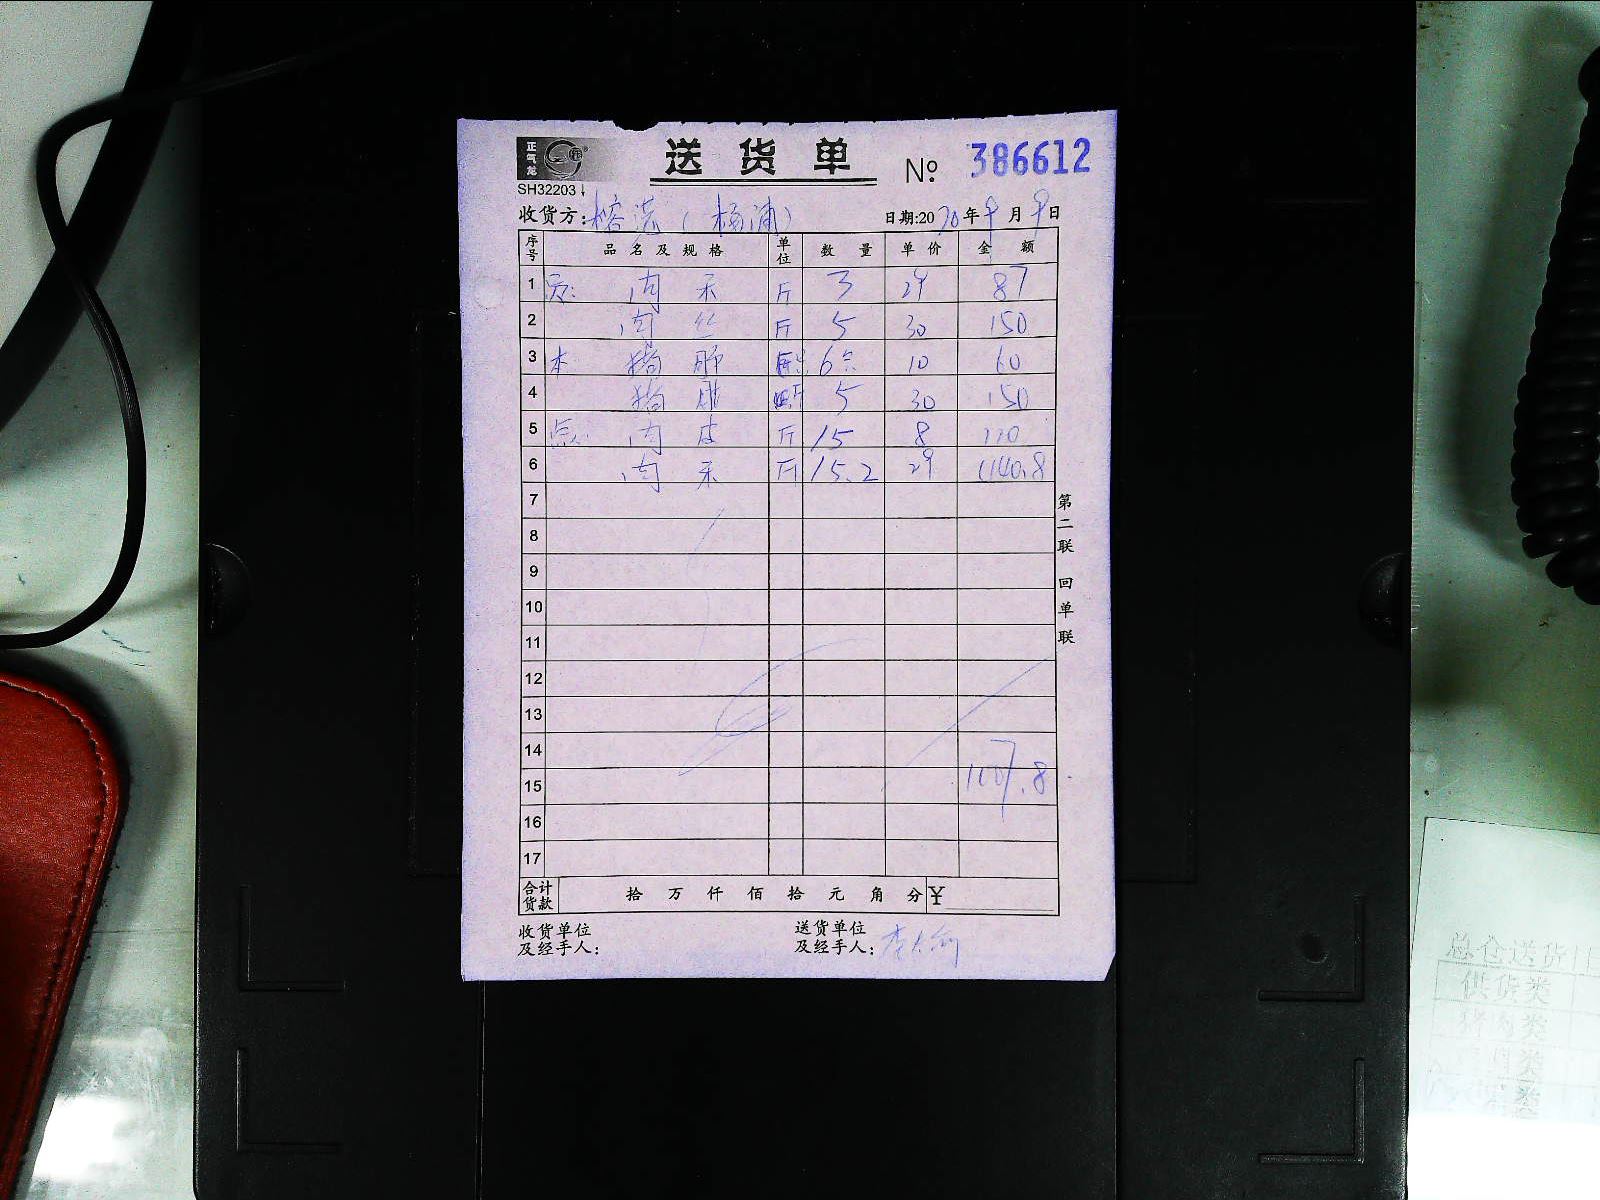 正气龙
送货单 № 386612
SH32203
收货方: 榕港(杨浦) 日期:2020年9月9日
序号 品名及规格 单位 数量 单价 金额
1 肉末 斤 3 29 87
2 肉丝 斤 5 30 150
3 本 猪脚 6 10 60
4 猪 5 30 150
5 点 肉皮 斤 15 8 120
6 肉末 斤 15.2 29 440.8
7
8
9
10
11
12
13
14
15 1107.8
16
17
合计货款 拾万仟佰拾元角分 ¥
收货单位及经手人: 送货单位及经手人: 李
第二联 回单联
总仓送货
供货类
猪肉类